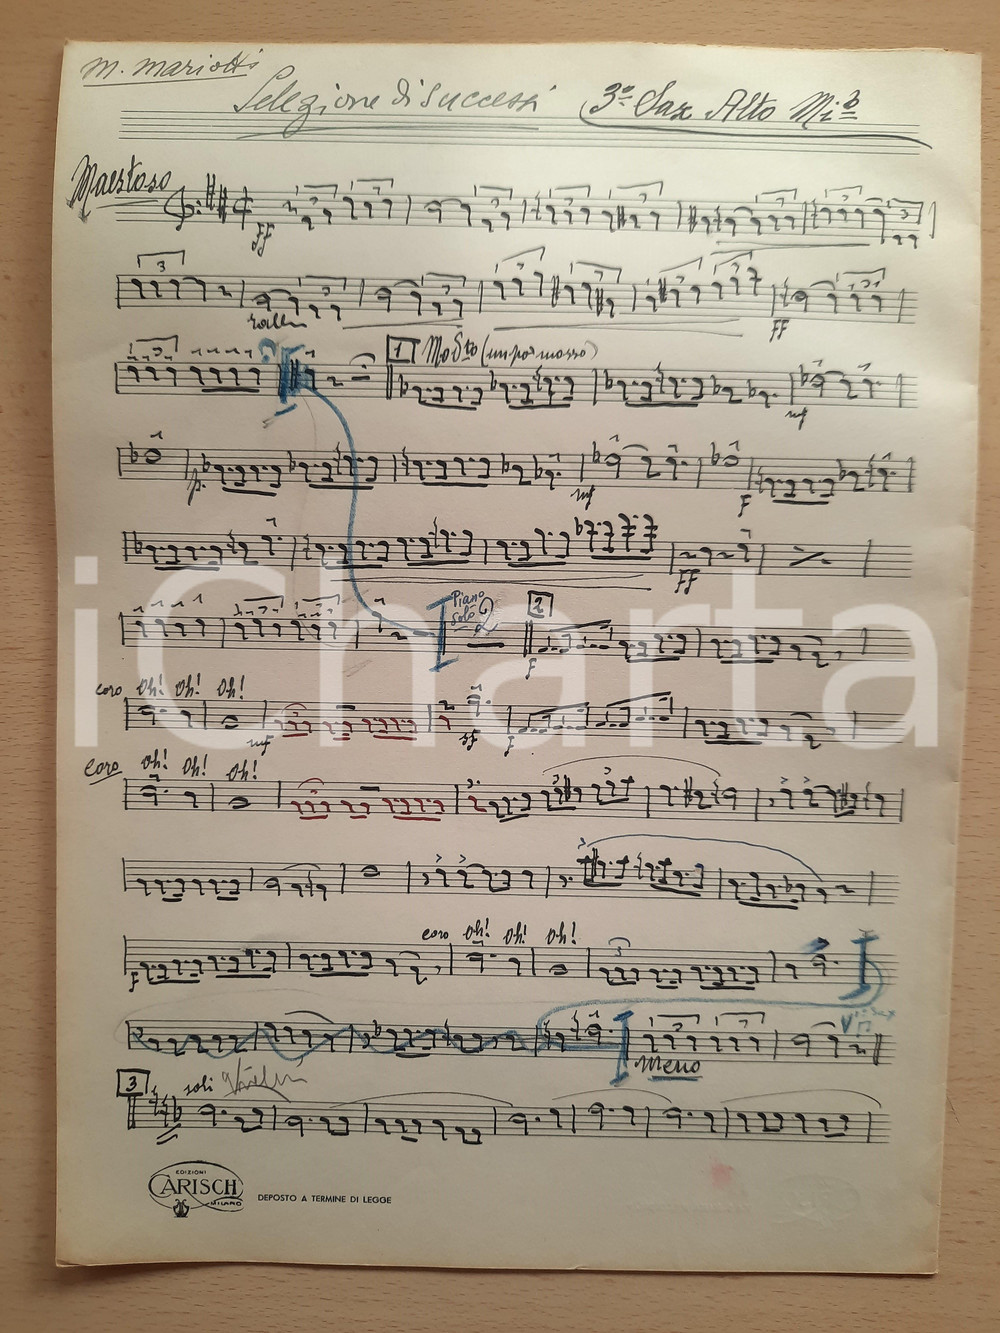 M. Mariotti
Selezione di Successi 3º Sax Alto Mi b
Maestoso
ff
3
3
rall
ff
1 Mod.to (un po' mosso)
mf
p. mf F
FF
Piano Solo 2
2
F
coro Oh! Oh! Oh!
mf sf F
coro Oh! Oh! Oh!
coro Oh! Oh! Oh!
F
Meno
3 soli
EDIZIONI
CARISCH
MILANO
DEPOSTO A TERMINE DI LEGGE
iCharta